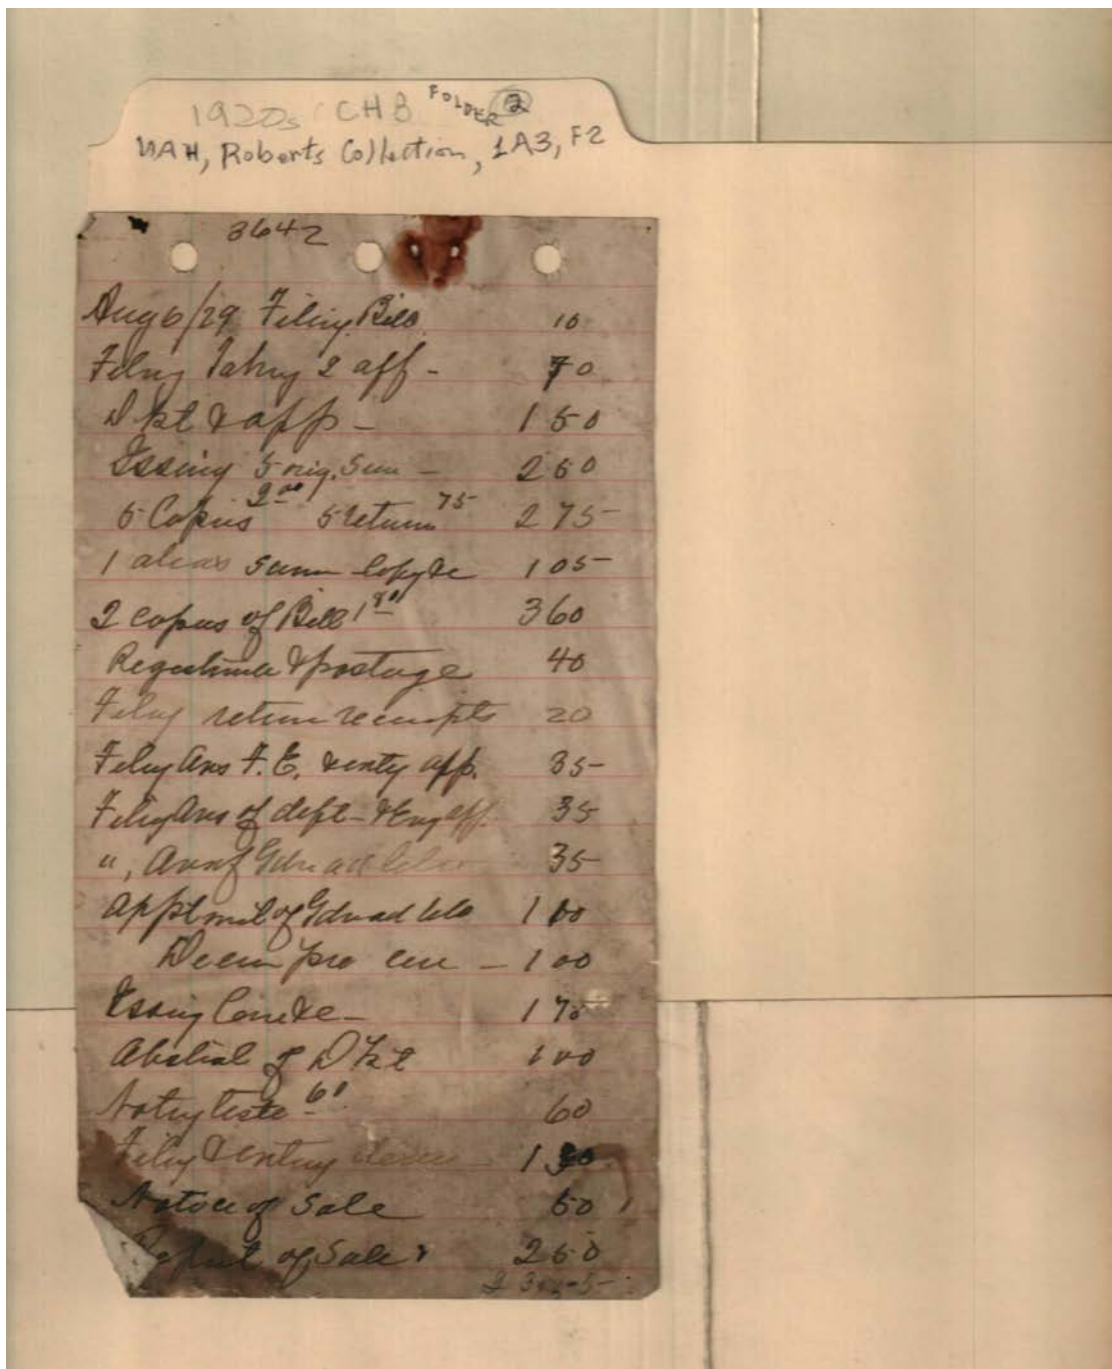 1920s CHB FOLDER 2
UAH, Roberts Collection, 1A3, F2
3642
Aug 6/29 Filing Bill 10
Filing Taking 2 aff - 70
Dkt & app - 150
Issuing 5 orig. Sum - 250
5 Copies 2 00 5 return 75 275
1 alias Summ Copy &c 105
2 copies of Bill 1 80 360
Registering & postage 40
Filing return receipts 20
Filing Ans F.E. & enty app. 35
Filing Ans of deft - & Eng aff. 35
", Ans of Gdn ad litem 35
Apptment of Gdn ad lit 100
Decree pro con - 100
Issuing &c - 170
Abstract of Dkt 100
Notry teste 60 60
Filing & entring decree 1
Notice of Sale 50
Report of Sale 250